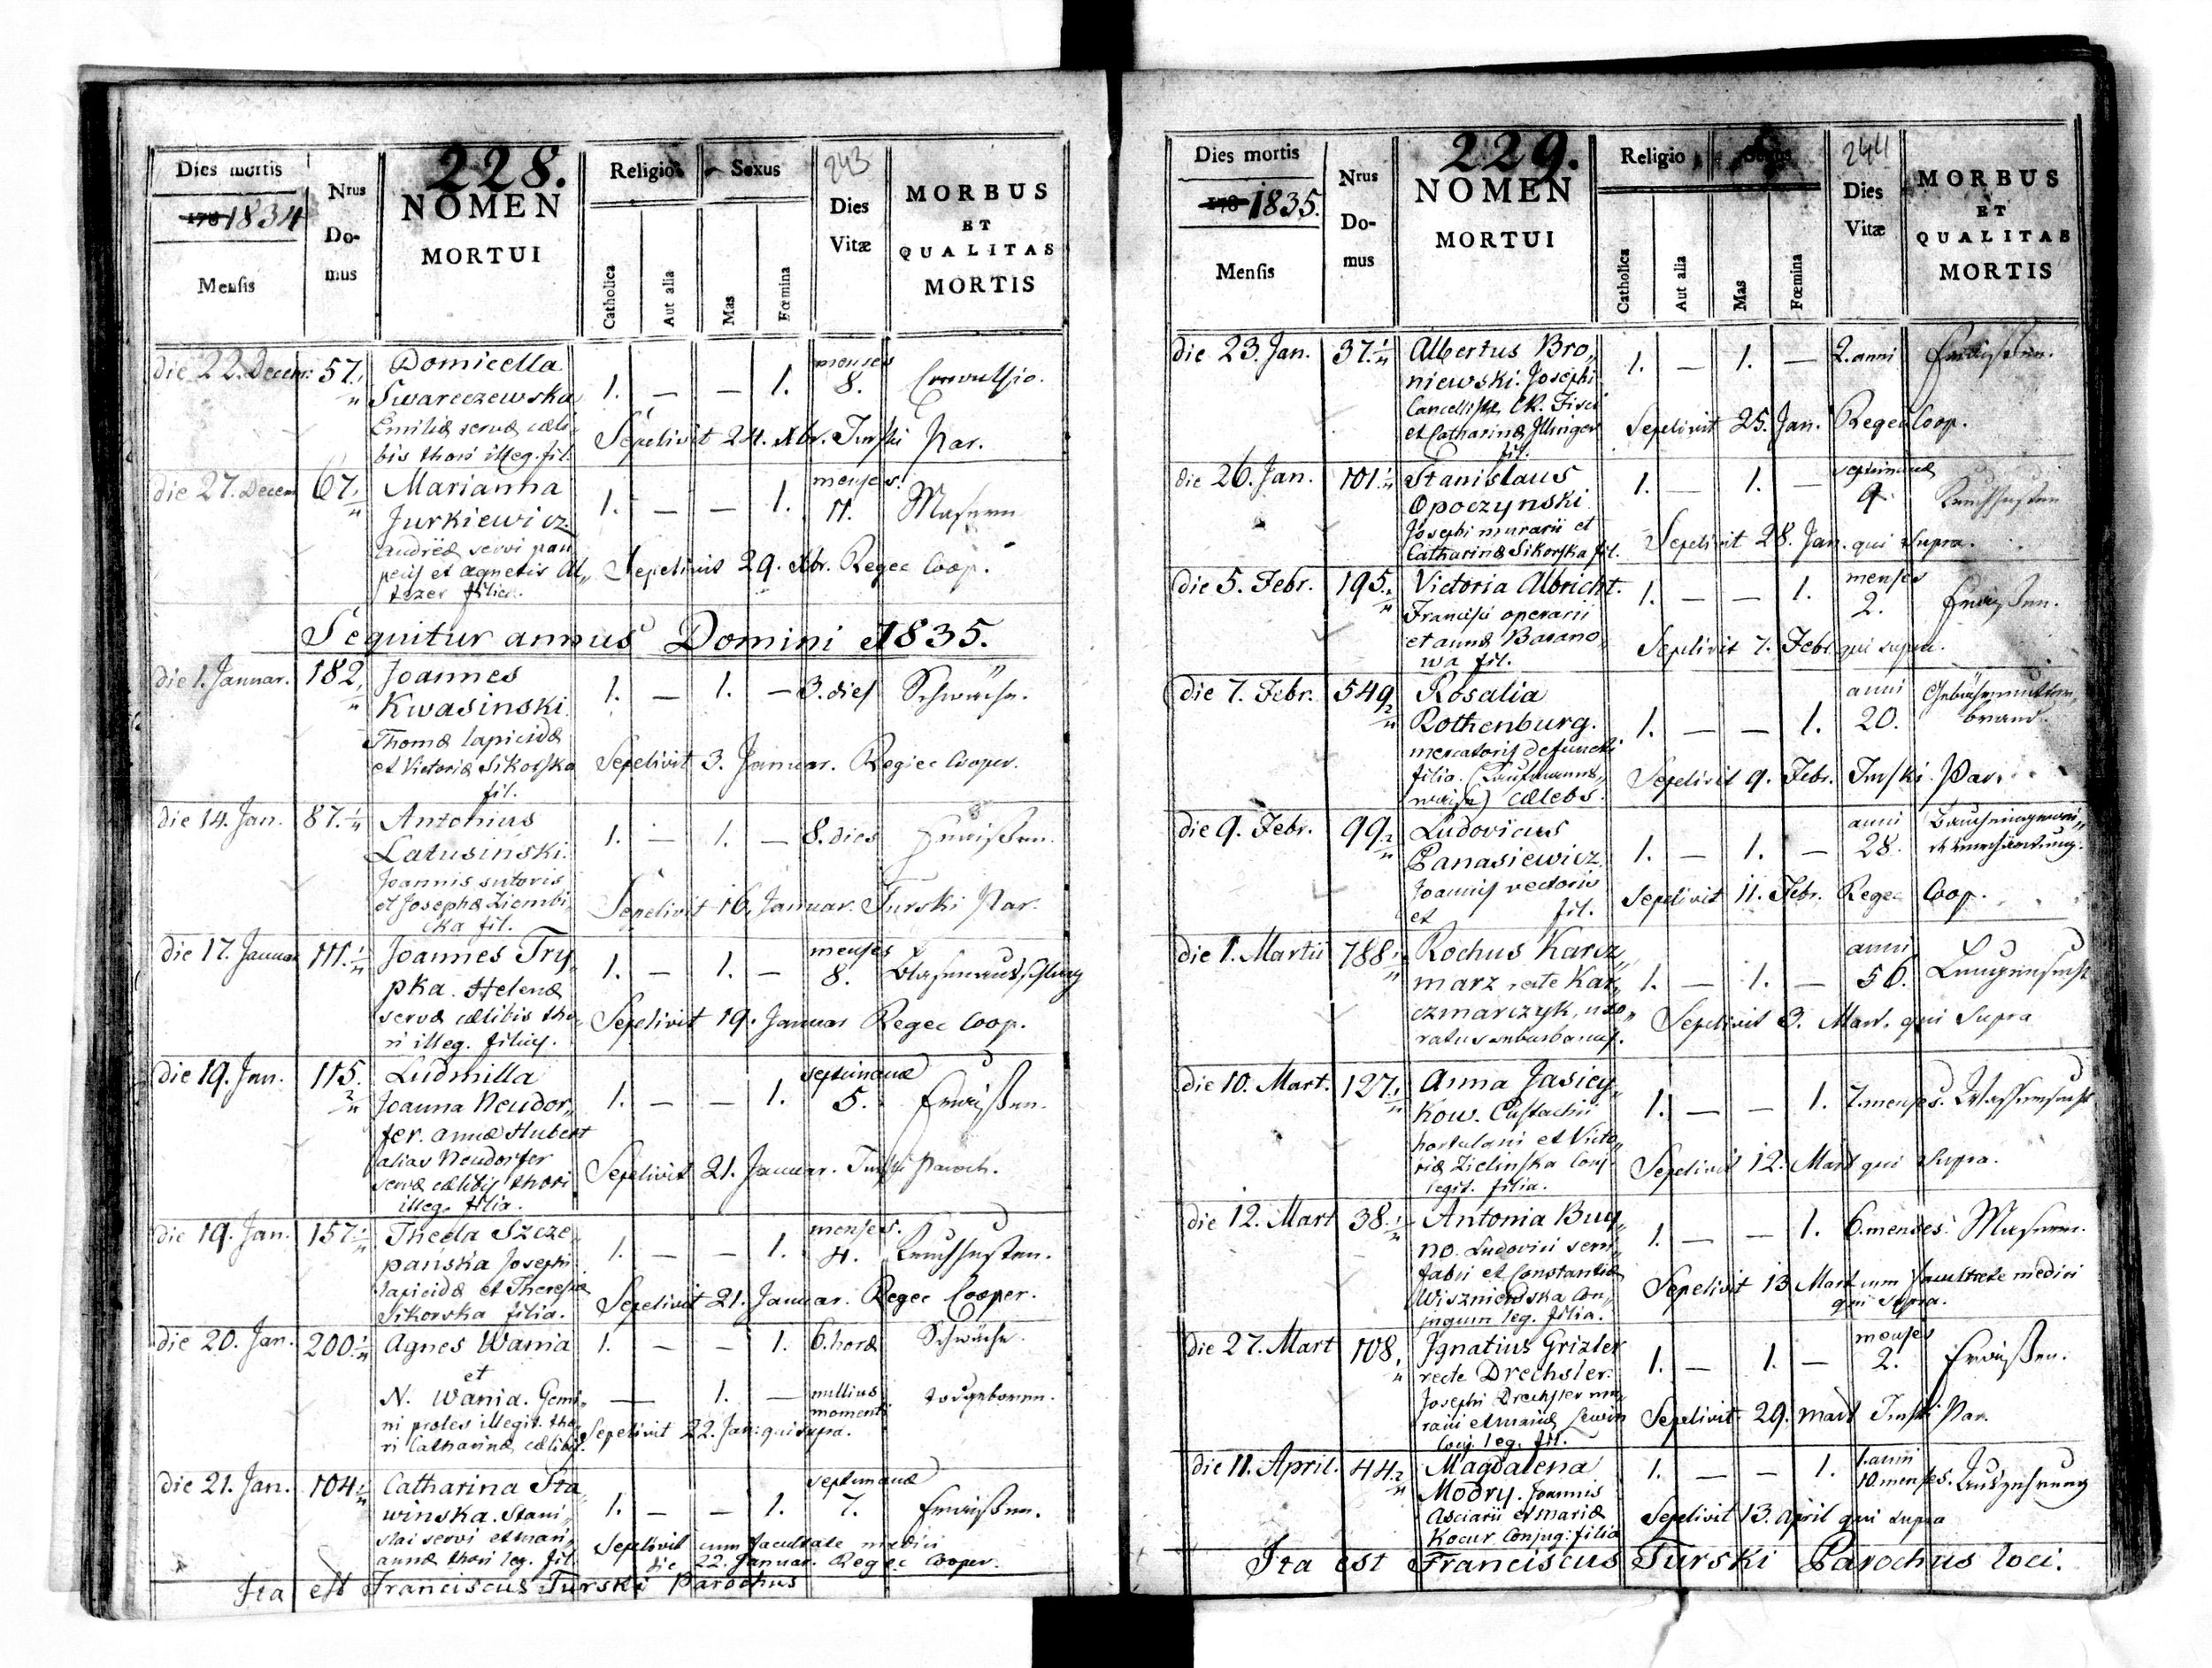 Dies mortis
Nrus Domus
228.
NOMEN MORTUI
Religio
Sexus
243
Dies Vitæ
MORBUS ET QUALITAS MORTIS
178 1834
Mensis
Catholica
Aut alia
Mas
Fœmina
die 22. Decem. 57. Domicella 1. — — 1. menses 8. Convulsio.
Swarczewska
Emiliæ servæ cæli-
bis thori illeg. fil.
Sepelivit 24. Xbr. Turski Par.
die 27. Decem 67. Marianna 1. — — 1. menses. 11. Masern
Jurkiewicz
Andreæ servi pau
peris et Agnetis Al„
tezer filia.
Sepelivit 29. Xbr. Regec Coop.
Sequitur annus Domini 1835.
die 1. Januar. 182. Joannes 1. — 1. — 3. dies Schwäche.
Kwasinski
Thomæ lapicidæ
et Victoriæ Sikorska
fil.
Sepelivit 3. Januar. Regec Cooper.
die 14. Jan. 87. Antonius 1. — 1. — 8. dies Fraißen.
Latusinski.
Joannis sutoris
et Josephæ Ziembi„
cka fil.
Sepelivit 16. Januar. Turski Par.
die 17. Januar 111. Joannes Try„ 1. — 1. — menses 8. Blasenausschlag
pka. Helenæ
servæ cælibis tho„
ri illeg. filius.
Sepelivit 19. Januar Regec Coop.
die 19. Jan. 115. Ludmilla 1. — — 1. septimanæ 5. Fraißen.
Joanna Neudor„
fer. Annæ Hubert
alias Neudorfer
servæ cælibis thori
illeg. filia.
Sepelivit 21. Januar. Turski Paroch.
die 19. Jan. 157. Thecla Szcze„ 1. — — 1. menses. 4. Keuchhusten.
pańska Josephi
lapicidæ et Theresiæ
Sikorska filia.
Sepelivit 21. Januar. Regec Cooper.
die 20. Jan. 200. Agnes Wania 1. — — 1. 6. horæ Schwäche.
et
N. Wania. Gemi„ — 1. — nullius momenti todtgeboren.
ni proles illegit. tho„
ri Catharinæ cælibis.
Sepelivit 22. Jan: qui supra.
die 21. Jan. 104. Catharina Sta„ 1. — — 1. septimanæ 7. Fraißen.
winska. Stani„
slai servi et Mari„
annæ thori leg. fil.
Sepelivit cum facultate medici
die 22. Januar. Regec Cooper.
Ita est Franciscus Turski Parochus
Dies mortis
Nrus Domus
229.
NOMEN MORTUI
Religio
244
Dies Vitæ
MORBUS ET QUALITAS MORTIS
178 1835.
Mensis
Catholica
Aut alia
Mas
Fœmina
die 23. Jan. 37. Albertus Bro„ 1. — 1. — 2. anni Fraißen.
niewski. Josephi
Cancellistæ CR. Fisci
et Catharinæ Illinger
fil.
Sepelivit 25. Jan. Regec Coop.
die 26. Jan. 101. Stanislaus 1. — 1. — septimanæ 9. Keuchhusten
Opoczynski
Josephi murarii et
Catharinæ Sikorska fil.
Sepelivit 28. Jan. qui supra.
die 5. Febr. 195. Victoria Albricht. 1. — — 1. menses 2. Fraißen.
Francisci operarii
et Annæ Barano„
wa fil.
Sepelivit 7. Febr. qui supra.
die 7. Febr. 549 Rosalia 1. — — 1. anni 20. Gebährmutter„
Rothenburg. brand.
mercatoris defuncti
filia. (Kaufmanns„
waise) cælebs.
Sepelivit 9. Febr. Turski Par.
die 9. Febr. 99. Ludovicus 1. — 1. — anni 28.
Panasiewicz.
Joannis rectoris
et fil.
Sepelivit 11. Febr. Regec Coop.
die 1. Martii 788. Rochus Karcz„ 1. — 1. — anni 56. Lungensucht
marz recte Kar„
czmarczyk, uxo„
ratus suburbanus.
Sepelivit 3. Mart. qui supra
die 10. Mart. 127. Anna Jasiey„ 1. — — 1. 7. menses. Wassersucht
kow. Eustachii
hortulani et Victo„
riæ Zielinska Conj.
legit. filia.
Sepelivit 12. Mart qui supra.
die 12. Mart 38. Antonia Buy„ 1. — — 1. 6. menses. Masern.
no. Ludovici serri„
fabri et Constantiæ
Wiszniewska Con„
jugum leg. filia.
Sepelivit 13 Mart cum facultate medici
qui supra.
die 27. Mart 108. Ignatius Grizler 1. — 1. — menses 2. Fraißen.
recte Drechsler.
Josephi Drechsler mu„
rarii et Mariæ Lewin
Conj. leg. fil.
Sepelivit 29. mart Turski Par.
die 11. April. 44. Magdalena 1. — — 1. 1. anni 10. menses. Auszehrung
Modry. Joannis
Asciarii et Mariæ
Kocur Conjug: filia
Sepelivit 13. April qui supra
Ita est Franciscus Turski Parochus loci.